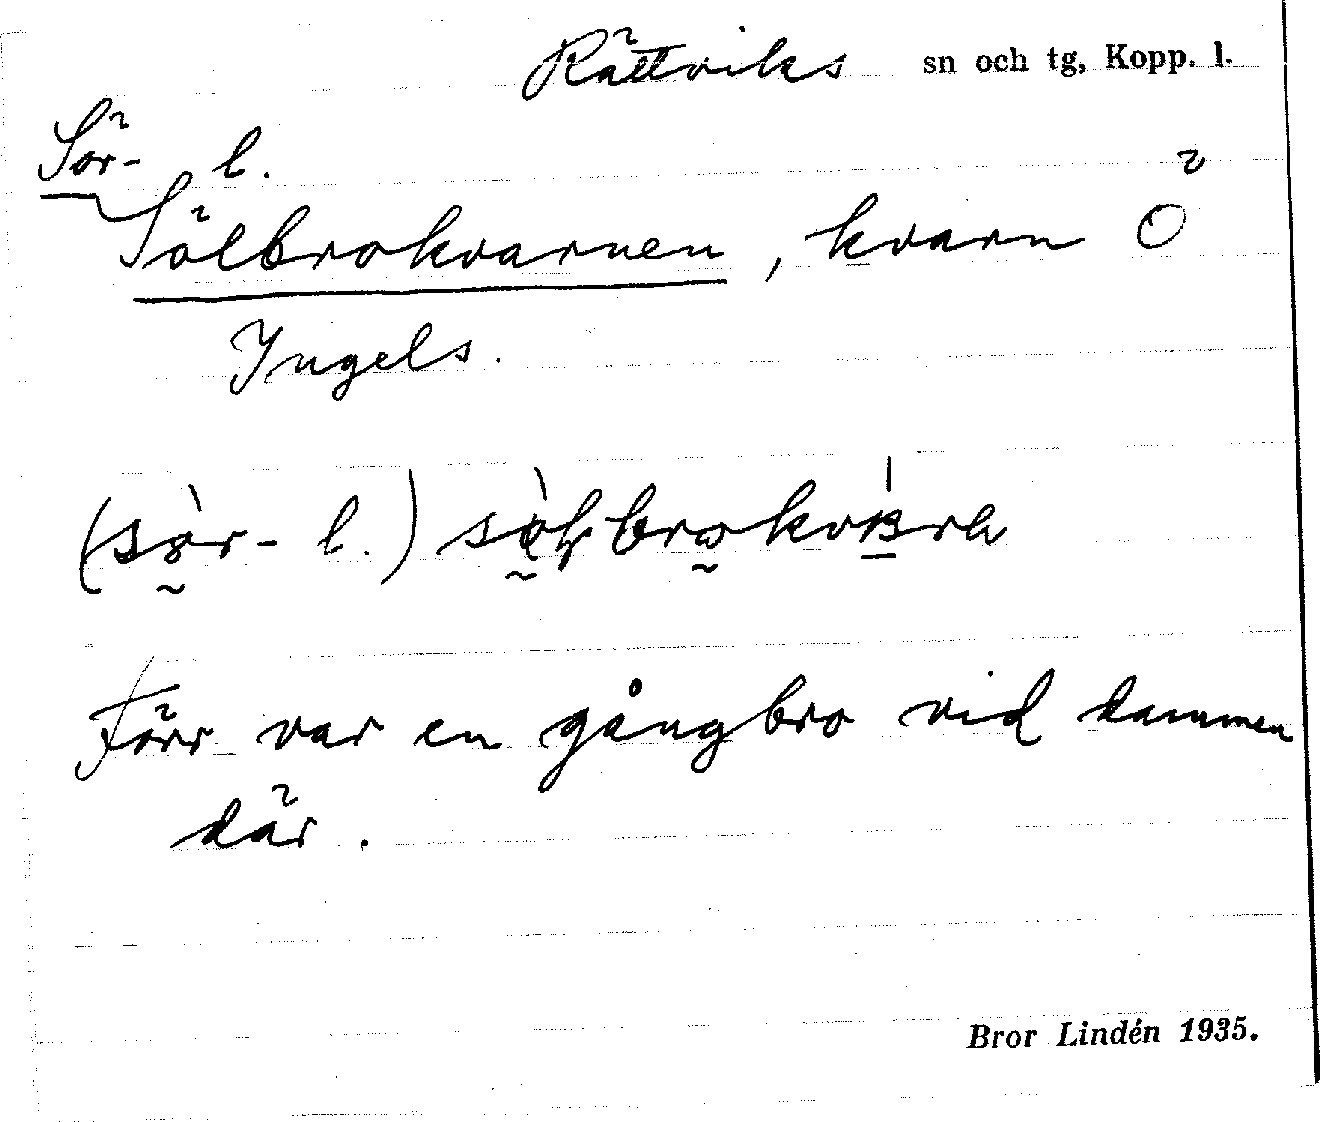 Rättviks sn och tg, Kopp. l.
Sör- l.
Sölbrokvarnen, kvarn Ö
Ingels.
(sör- l.)
Förr var en gångbro vid dammen
där.
Bror Lindén 1935.